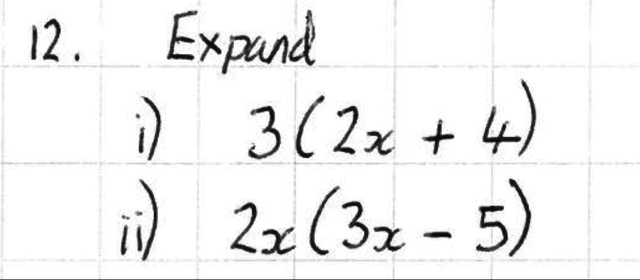 12. Expand
i) 3(2x + 4)
ii) 2x(3x - 5)